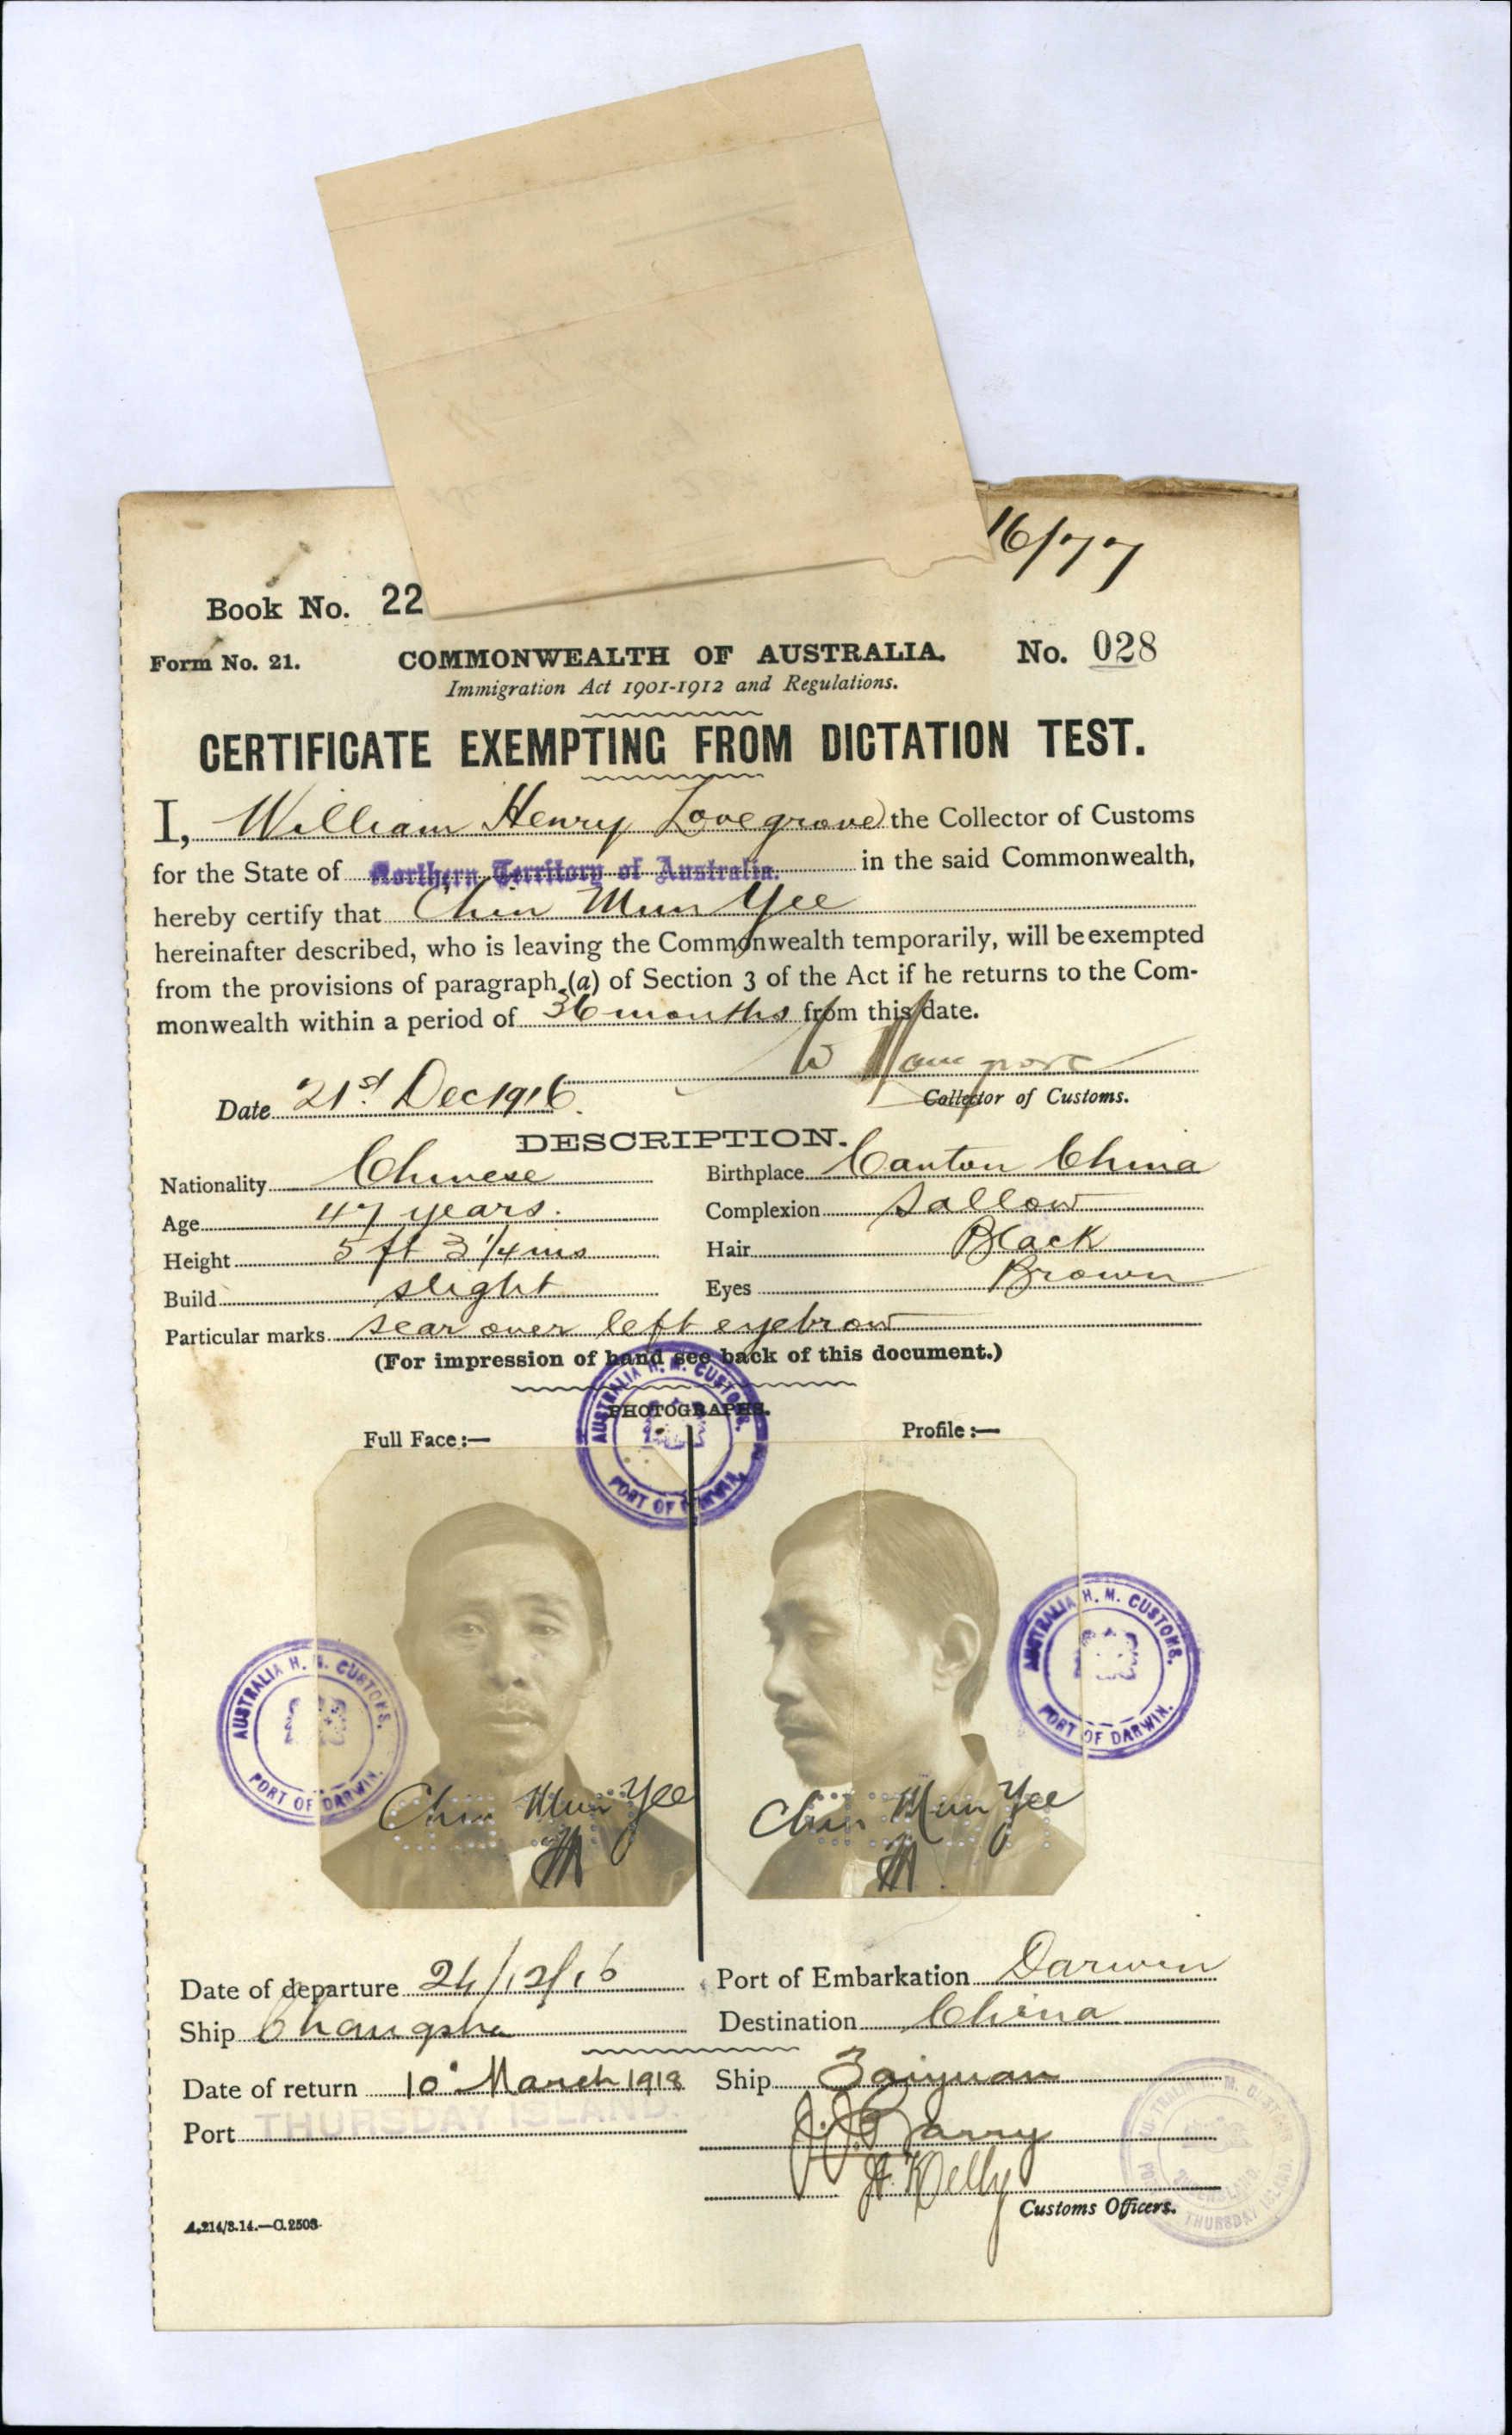 16/77
Book No. 22
Form No. 21. COMMONWEALTH OF AUSTRALIA. No. 028
Immigration Act 1901-1912 and Regulations.
CERTIFICATE EXEMPTING FROM DICTATION TEST.
I, William Henry Lovegrove the Collector of Customs
for the State of Northern Territory of Australia. in the said Commonwealth,
hereby certify that Chin Mun Yee
hereinafter described, who is leaving the Commonwealth temporarily, will be exempted
from the provisions of paragraph (a) of Section 3 of the Act if he returns to the Com-
monwealth within a period of 36 months from this date.
Date 21st Dec 1916. Collector of Customs.
DESCRIPTION.
Nationality Chinese Birthplace Canton China
Age 47 years. Complexion Sallow
Height 5 ft 3 1/4 ins Hair Black
Build slight Eyes Brown
Particular marks scar over left eyebrow
(For impression of hand see back of this document.)
PHOTOGRAPHS.
AUSTRALIA H. M. CUSTOMS. PORT OF DARWIN.
Full Face:— Profile:—
AUSTRALIA H. M. CUSTOMS. PORT OF DARWIN.
AUSTRALIA H. M. CUSTOMS. PORT OF DARWIN.
Chin Mun Yee Chin Mun Yee
Date of departure 24/12/16 Port of Embarkation Darwin
Ship Changsha Destination China
Date of return 10 March 1918 Ship Taiyuan
Port THURSDAY ISLAND. J. J. Garry
H. Kelly
Customs Officers.
AUSTRALIA H. M. CUSTOMS. QUEENSLAND. THURSDAY ISLAND.
A.214/3.14.—C.2503.